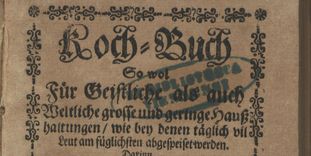 Koch-Buch
So wol
Für Geistliche als auch
Weltliche grosse und geringe Hauß
haltungen / wie bey denen täglich vil
Leut am füglichsten abgespeiset werden.
Darinn